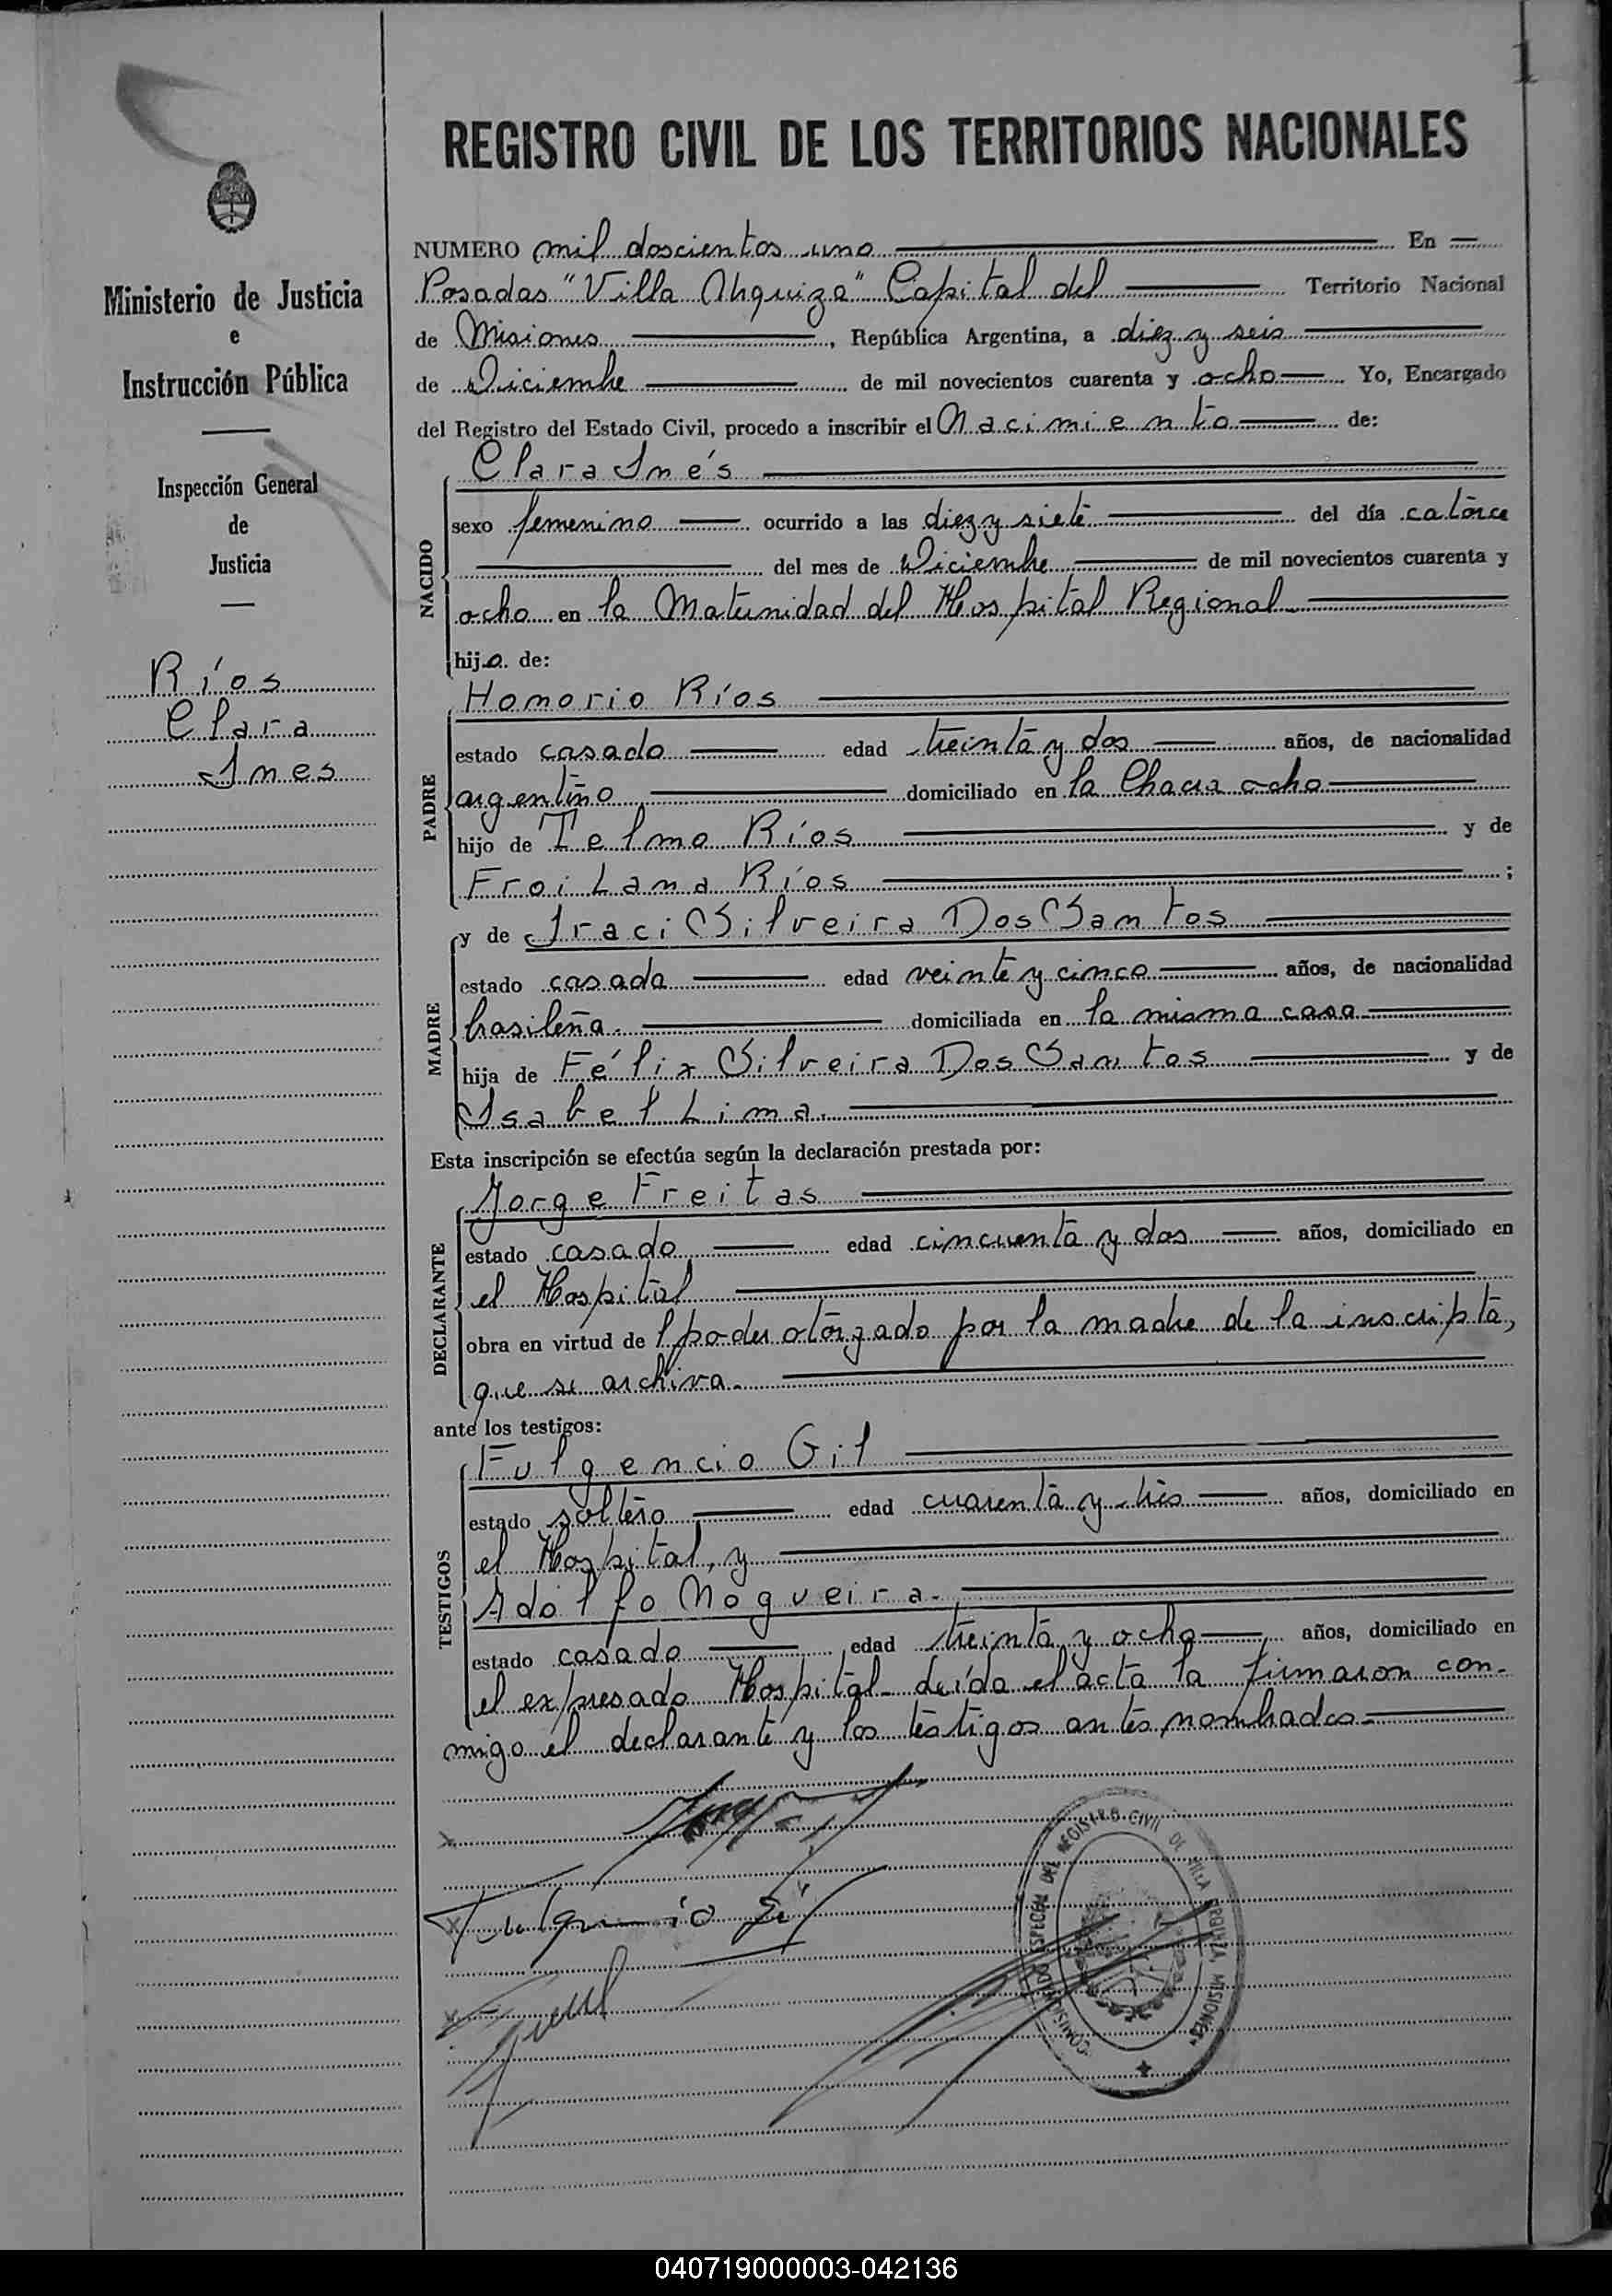 1
REGISTRO CIVIL DE LOS TERRITORIOS NACIONALES
Ministerio de Justicia
e
Instrucción Pública
Inspección General
de
Justicia
Ríos
Clara
Ines
NUMERO mil doscientos uno En
Posadas "Villa Urquiza" Capital del Territorio Nacional
de Misiones, República Argentina, a diez y seis
de Diciembre de mil novecientos cuarenta y ocho Yo, Encargado
del Registro del Estado Civil, procedo a inscribir el Nacimiento de:
NACIDO
Clara Inés
sexo femenino ocurrido a las diez y siete del día catorce
del mes de Diciembre de mil novecientos cuarenta y
ocho en la Maternidad del Hospital Regional
hija de:
PADRE
Honorio Ríos
estado casado edad treinta y dos años, de nacionalidad
argentino domiciliado en la Chacra ocho
hijo de Telmo Ríos y de
Froilana Ríos;
MADRE
y de Iraci Silveira Dos Santos
estado casada edad veinte y cinco años, de nacionalidad
brasileña. domiciliada en la misma casa
hija de Félix Silveira Dos Santos y de
Isabel Lima.
Esta inscripción se efectúa según la declaración prestada por:
DECLARANTE
Jorge Freitas
estado casado edad cincuenta y dos años, domiciliado en
el Hospital
obra en virtud del poder otorgado por la madre de la inscripta,
que se archiva.
ante los testigos:
TESTIGOS
Fulgencio Gil
estado soltero edad cuarenta y tres años, domiciliado en
el Hospital, y
Adolfo Nogueira.
estado casado edad treinta y ocho años, domiciliado en
el expresado Hospital. Leída el acta la firmaron con-
migo el declarante y los testigos antes nombrados.
Fulgencio Gil
COMISIONADO ESPECIAL DEL REGISTRO CIVIL DE VILLA URQUIZA, MISIONES
040719000003-042136